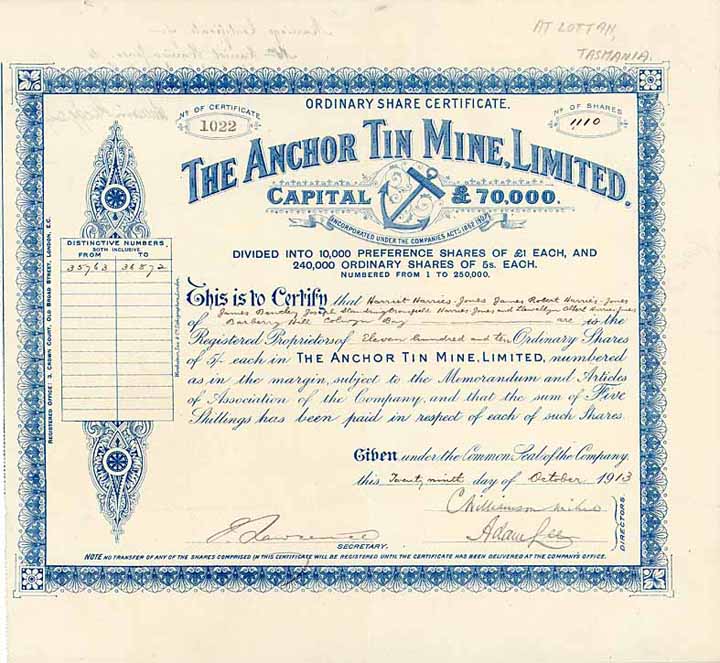 AT LOTTAH,
TASMANIA.
Marriage Certificate
ORDINARY SHARE CERTIFICATE.
No OF CERTIFICATE
1022
No OF SHARES
1110
THE ANCHOR TIN MINE, LIMITED.
CAPITAL £70,000.
INCORPORATED UNDER THE COMPANIES ACTS 1862
DIVIDED INTO 10,000 PREFERENCE SHARES OF £1 EACH, AND
240,000 ORDINARY SHARES OF 5s. EACH.
NUMBERED FROM 1 TO 250,000.
DISTINCTIVE NUMBERS,
BOTH INCLUSIVE
FROM TO
35763 36872
This is to Certify that Harriet Harries-Jones James Robert Harries-Jones
James Joseph and Llewellyn Albert
of Barberry Hill Colwyn Bay are is the
Registered Proprietors of Eleven hundred and ten Ordinary Shares
of 5/- each in THE ANCHOR TIN MINE, LIMITED, numbered
as in the margin, subject to the Memorandum and Articles
of Association of the Company, and that the sum of Five
Shillings has been paid in respect of each of such Shares.
Given under the Common Seal of the Company,
this Twenty ninth day of October 1913
Adam Lee
DIRECTORS.
E. Lawrence
SECRETARY.
NOTE NO TRANSFER OF ANY OF THE SHARES COMPRISED IN THIS CERTIFICATE WILL BE REGISTERED UNTIL THE CERTIFICATE HAS BEEN DELIVERED AT THE COMPANY'S OFFICE.
REGISTERED OFFICE: 3, CROWN COURT, OLD BROAD STREET, LONDON, E.C.